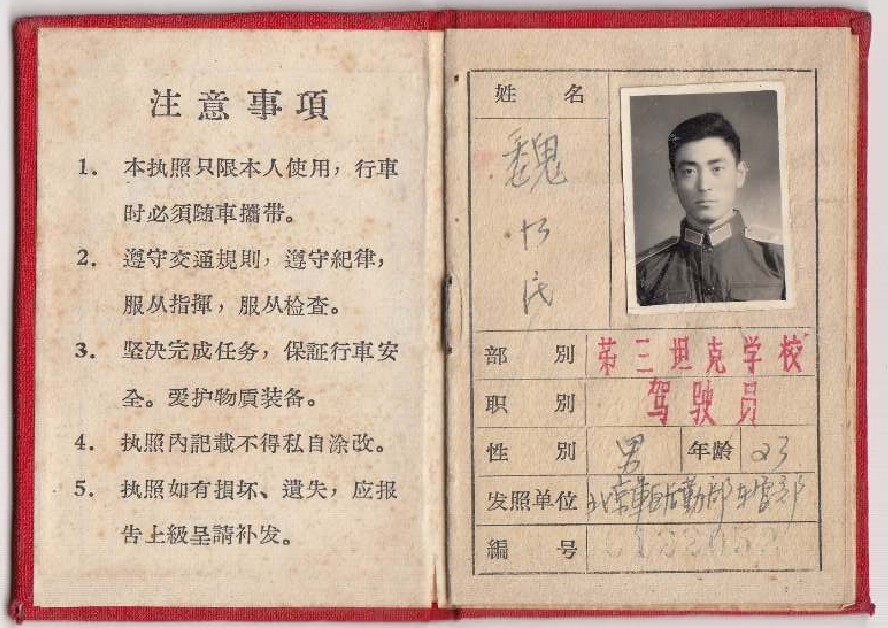 注意事項
1. 本执照只限本人使用，行車
时必須随車攜带。
2. 遵守交通規則，遵守紀律，
服从指揮，服从检查。
3. 坚决完成任务，保証行車安
全。爱护物质装备。
4. 执照內記載不得私自涂改。
5. 执照如有損坏、遺失，应报
告上級呈請补发。
姓 名
魏
部 別 第三坦克学校
职 別 驾驶员
性 別 男 年龄 23
发照单位 北京軍区后勤部车管部
編 号